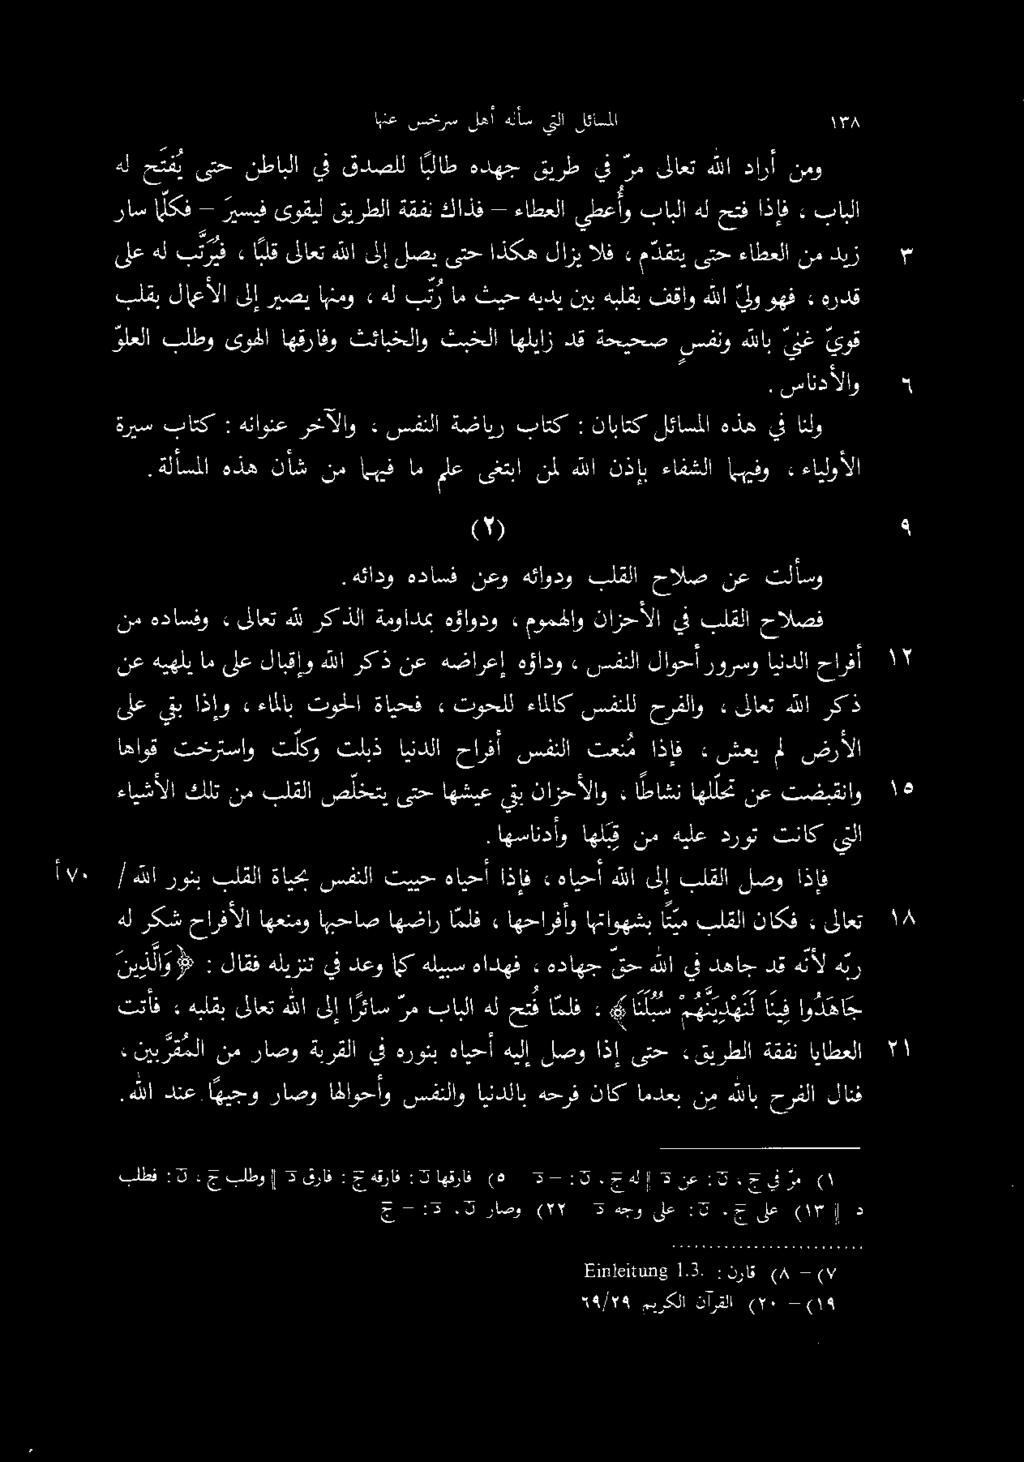 ١٣٨ المسائل التي سأله أهل سرخس عنها
ومن أراد الله تعالى مرّ في طريق جهده طالبًا للصدق في الباطن حتى يُفتَح له
الباب ، فإذا فتح له الباب وأُعطي العطاء – فذاك نفقة الطريق ليقوى فيسيرَ – فكلّما سار
٣ زيد من العطاء حتى يتقدّم ، فلا يزال هكذا حتى يصل إلى الله تعالى قلبًا ، فيُرَتَّب له على
قدره ، فهو وليّ الله واقف بقلبه بين يديه حيث ما رُتّب له ، ومنها يصير إلى الأعمال بقلب
قويّ غنيّ بالله ونفسٍ صحيحة قد زايلها الخبث والخبائث وفارقها الهوى وطلب العلوّ
٦ والأدناس .
ولنا في هذه المسائل كتابان : كتاب رياضة النفس ، والآخر عنوانه : كتاب سيرة
الأولياء ، وفيهما الشفاء بإذن الله لمن ابتغى علم ما فيهما من شأن هذه المسألة .
٩ (٢)
وسألت عن صلاح القلب ودوائه وعن فساده ودائه .
فصلاح القلب في الأحزان والهموم ، ودواؤه بمداومة الذكر لله تعالى ، وفساده من
١٢ أفراح الدنيا وسرور أحوال النفس ، وداؤه إعراضه عن ذكر الله وإقبال على ما يلهيه عن
ذكر الله تعالى ، والفرح للنفس كالماء للحوت ، فحياة الحوت بالماء ، وإذا بقي على
الأرض لم يعش ، فإذا مُنعت النفس أفراح الدنيا ذبلت وكلّت واسترخت قواها
١٥ وانقبضت عن تحلّلها نشاطًا ، والأحزان بقي عيشها حتى يتخلّص القلب من تلك الأشياء
التي كانت تورد عليه من قِبَلها وأدناسها .
فإذا وصل القلب إلى الله أحياه ، فإذا أحياه حييت النفس بحياة القلب بنور الله / ٧٠أ
١٨ تعالى ، فكان القلب ميّتًا بشهواتها وأفراحها ، فلمّا راضها صاحبها ومنعها الأفراح شكر له
ربّه لأنّه قد جاهد في الله حقّ جهاده ، فهداه سبيله كما وعد في تنزيله فقال : ﴿وَالَّذِينَ
جَاهَدُوا فِينَا لَنَهْدِيَنَّهُمْ سُبُلَنَا﴾ ، فلمّا فُتح له الباب مرّ سائرًا إلى الله تعالى بقلبه ، فأتت
٢١ العطايا نفقة الطريق ، حتى إذا وصل إليه أحياه بنوره في القربة وصار من المُقرَّبين ،
فنال الفرح بالله مِن بعدما كان فرحه بالدنيا والنفس وأحوالها وصار وجيهًا عند الله .
١) مرّ في ج ، ن : عن د ‖ له ج ، ن : – د ٥) فارقها ن : فارقه ج : فارق د ‖ وطلب ج ، ن : فطلب
د ‖ ١٣) على ج ، ن : على وجه د ٢٢) وصار ن ، د : – ج
٧) – ٨) قارن : Einleitung 1.3.
١٩) – ٢٠) القرآن الكريم ٢٩/٦٩